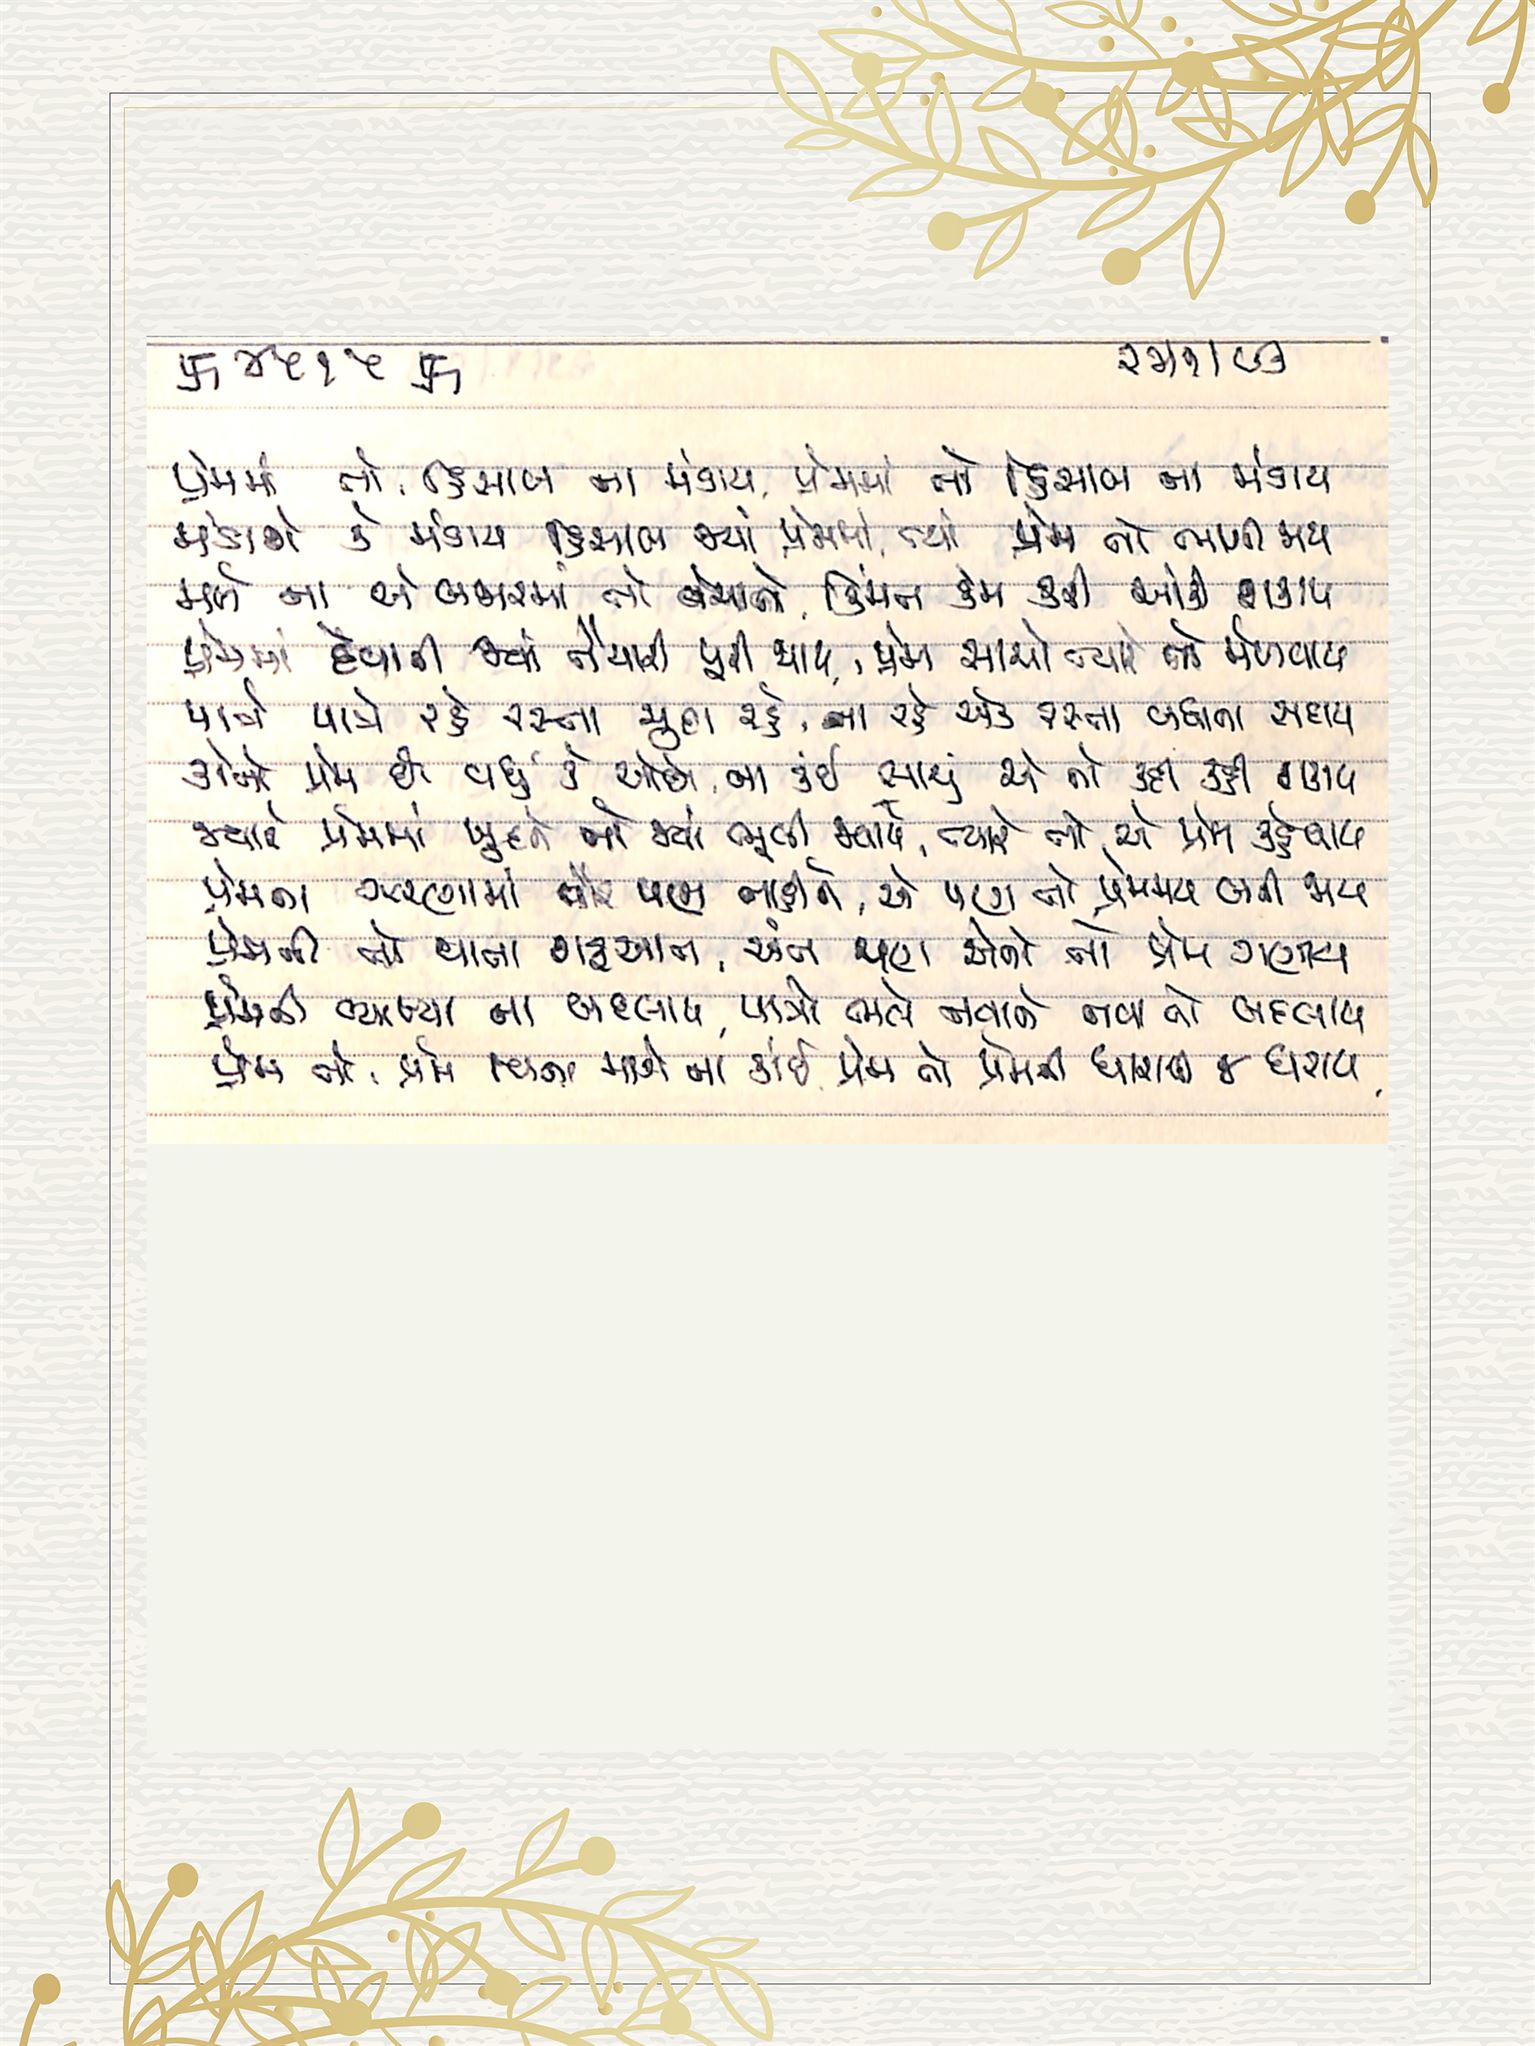 卐 ૪૬૧૬ 卐 ૨૩/૧/૯૩
પ્રેમમાં તો, હિસાબ ના મંડાય, પ્રેમમાં તો હિસાબ ના મંડાય
મંડાશે કે મંડાય હિસાબ જ્યાં પ્રેમમાં, ત્યાં પ્રેમ તો ભાગી જાય
મળે ના એ બજારમાં તો વેચાતો, કિંમત કેમ કરી આંકી શકાય
પ્રેમમાં દેવાની જ્યાં તૈયારી પૂરી થાય, પ્રેમ સાચો ત્યારે તો મેળવાય
પાત્રે પાત્રે રહે રસ્તા જુદા રહે, ના રહે એક રસ્તા બધાના સદાય
કોનો પ્રેમ છે વધું કે ઓછો, ના કંઈ સાચું એ તો કદી કહી શકાય
જ્યારે પ્રેમમાં ખુદને તો જ્યાં ભૂલી જવાયે, ત્યારે તો એ પ્રેમ કહેવાય
પ્રેમના ઝરણામાં વૈર પણ નાહીને, એ પણ તો પ્રેમમય બની જાય
પ્રેમની તો થાતા શરૂઆત, અંત પણ એનો તો પ્રેમ ગણાય
પ્રેમની વ્યાખ્યા ના બદલાય, પાત્રો ભલે નવાને નવા તો બદલાય
પ્રેમ તો, પ્રેમ વિના માગે ના કાંઈ, પ્રેમ તો પ્રેમની ધારાથી જ ધરાય.